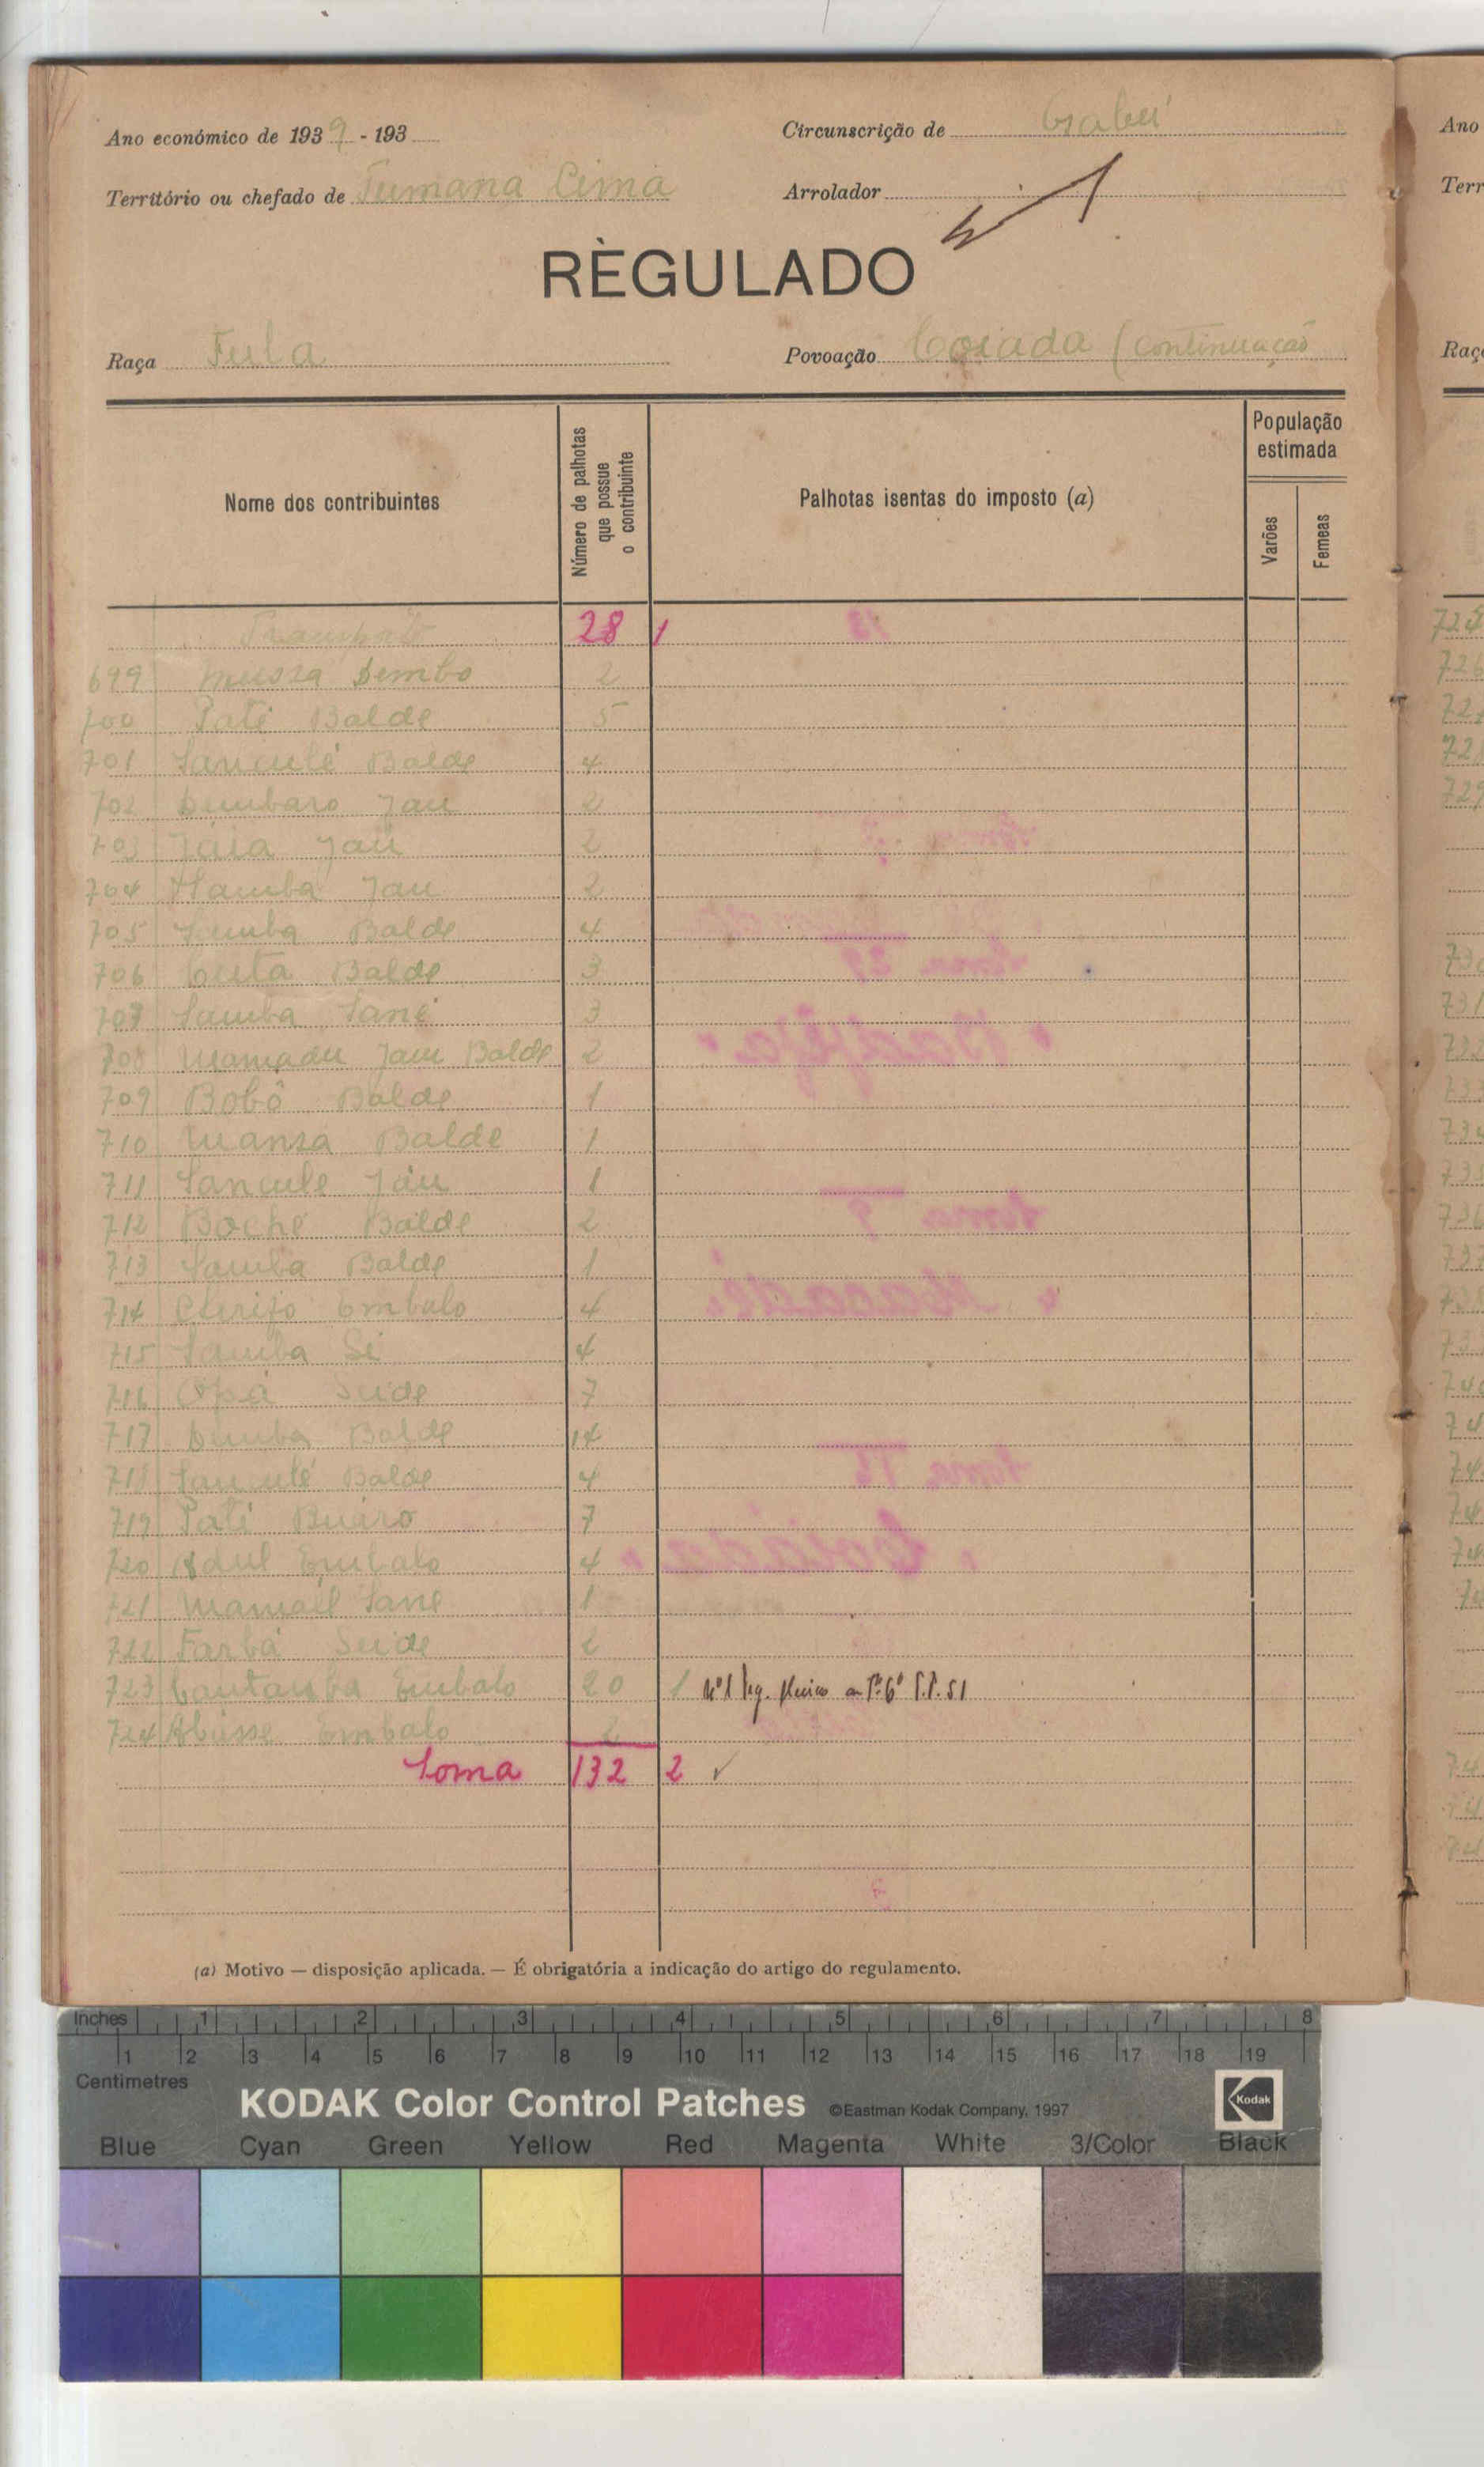 Ano económico de 1939 - 193
Circunscrição de Gabú
Território ou chefado de Tumana Cima
Arrolador
RÈGULADO
Raça Fula
Povoação Coiada (continuação
Nome dos contribuintes
Número de palhotas que possue o contribuinte
Palhotas isentas do imposto (a)
População estimada
Varões
Femeas
Transporte 28 1
699 Mussa Dembo 2
700 Paté Balde 5
701 Sanculé Balde 4
702 Dembaro Jau 2
703 Jaia Jau 2
704 Hamba Jau 2
705 Samba Balde 4
706 Cuta Balde 3
707 Samba Sané 3
708 Mamadu Jau Balde 2
709 Bobô Balde 1
710 Mansa Balde 1
711 Sancule Jau 1
712 Boché Balde 2
713 Samba Balde 1
714 Cherifo Embalo 4
715 Samba Sé 4
716 Opá Seide 7
717 Demba Balde 14
718 Sanculé Balde 4
719 Paté Buaro 7
720 Adul Embalo 4
721 Mamael Sane 1
722 Farbá Seide 2
723 Cantamba Embalo 20 1 Nº1
724 Abusse Embalo 2
Soma 132 2 ✓
(a) Motivo — disposição aplicada. — É obrigatória a indicação do artigo do regulamento.
Inches 1 2 3 4 5 6 7 8
1 2 3 4 5 6 7 8 9 10 11 12 13 14 15 16 17 18 19
Centimetres
KODAK Color Control Patches ©Eastman Kodak Company, 1997 Kodak
Blue Cyan Green Yellow Red Magenta White 3/Color Black